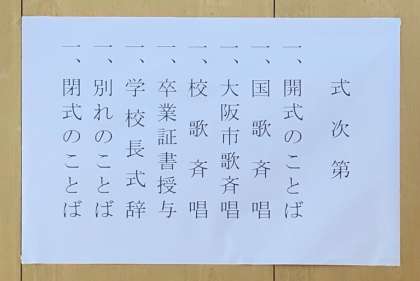 式次第
一、開式のことば
一、国歌斉唱
一、大阪市歌斉唱
一、校歌斉唱
一、卒業証書授与
一、学校長式辞
一、別れのことば
一、閉式のことば